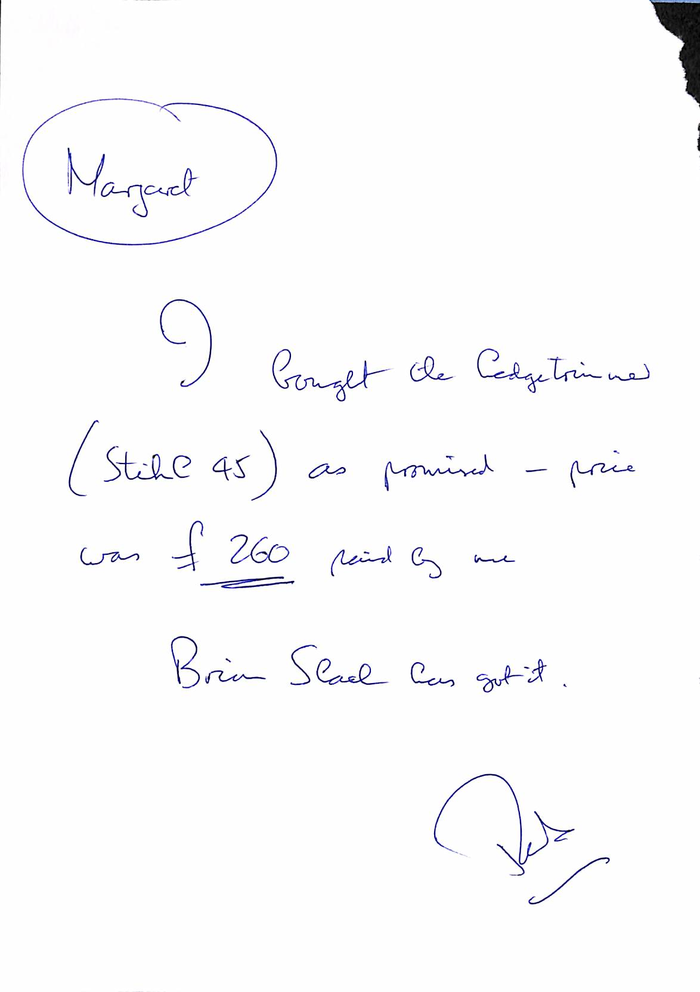 Margaret
I bought the hedgetrimmer
(Stihl 45) as promised – price
was £260 paid by me
Brian has got it.